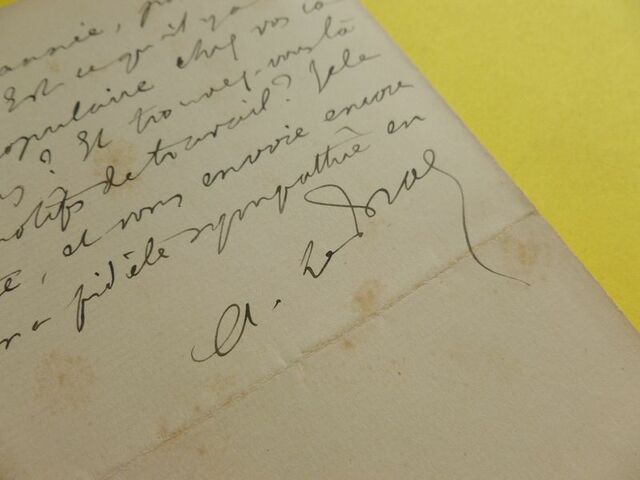 année,
Est ce qu'il y a
populaire chez vos
? Et trouvez-vous là
motifs de travail? Je le
, et vous envoie encore
ma fidèle sympathie en
A. Le Braz